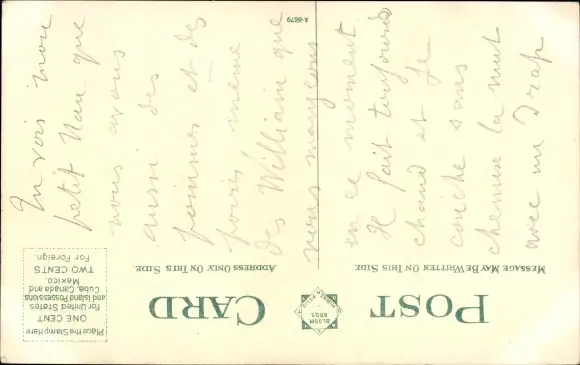 Tu vois mon
petit Nau que
nous avons
aussi des
pommes et des
poires, même
des William que
nous mangeons
en ce moment
Il fait toujours
chaud et je
couche sans
chemise la nuit
avec un Drap
POST CARD
BLOOM BROS.
MESSAGE MAY BE WRITTEN ON THIS SIDE
ADDRESS ONLY ON THIS SIDE.
Place the Stamp Here
ONE CENT
for United States
and Island Possessions
Cuba, Canada and
Mexico.
TWO CENTS
For Foreign.
A-6679